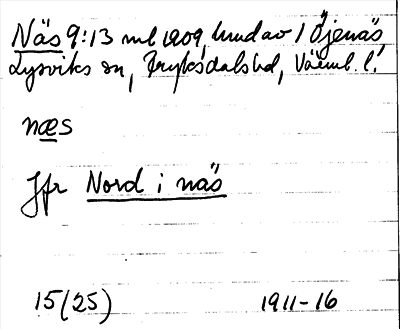 Näs 9:13 ml 1909, lund av 1 Öjenäs,
Lysviks sn, Fryksdals hd, Värml. l.
næs
Jfr Nord i näs
15(25) 1911-16